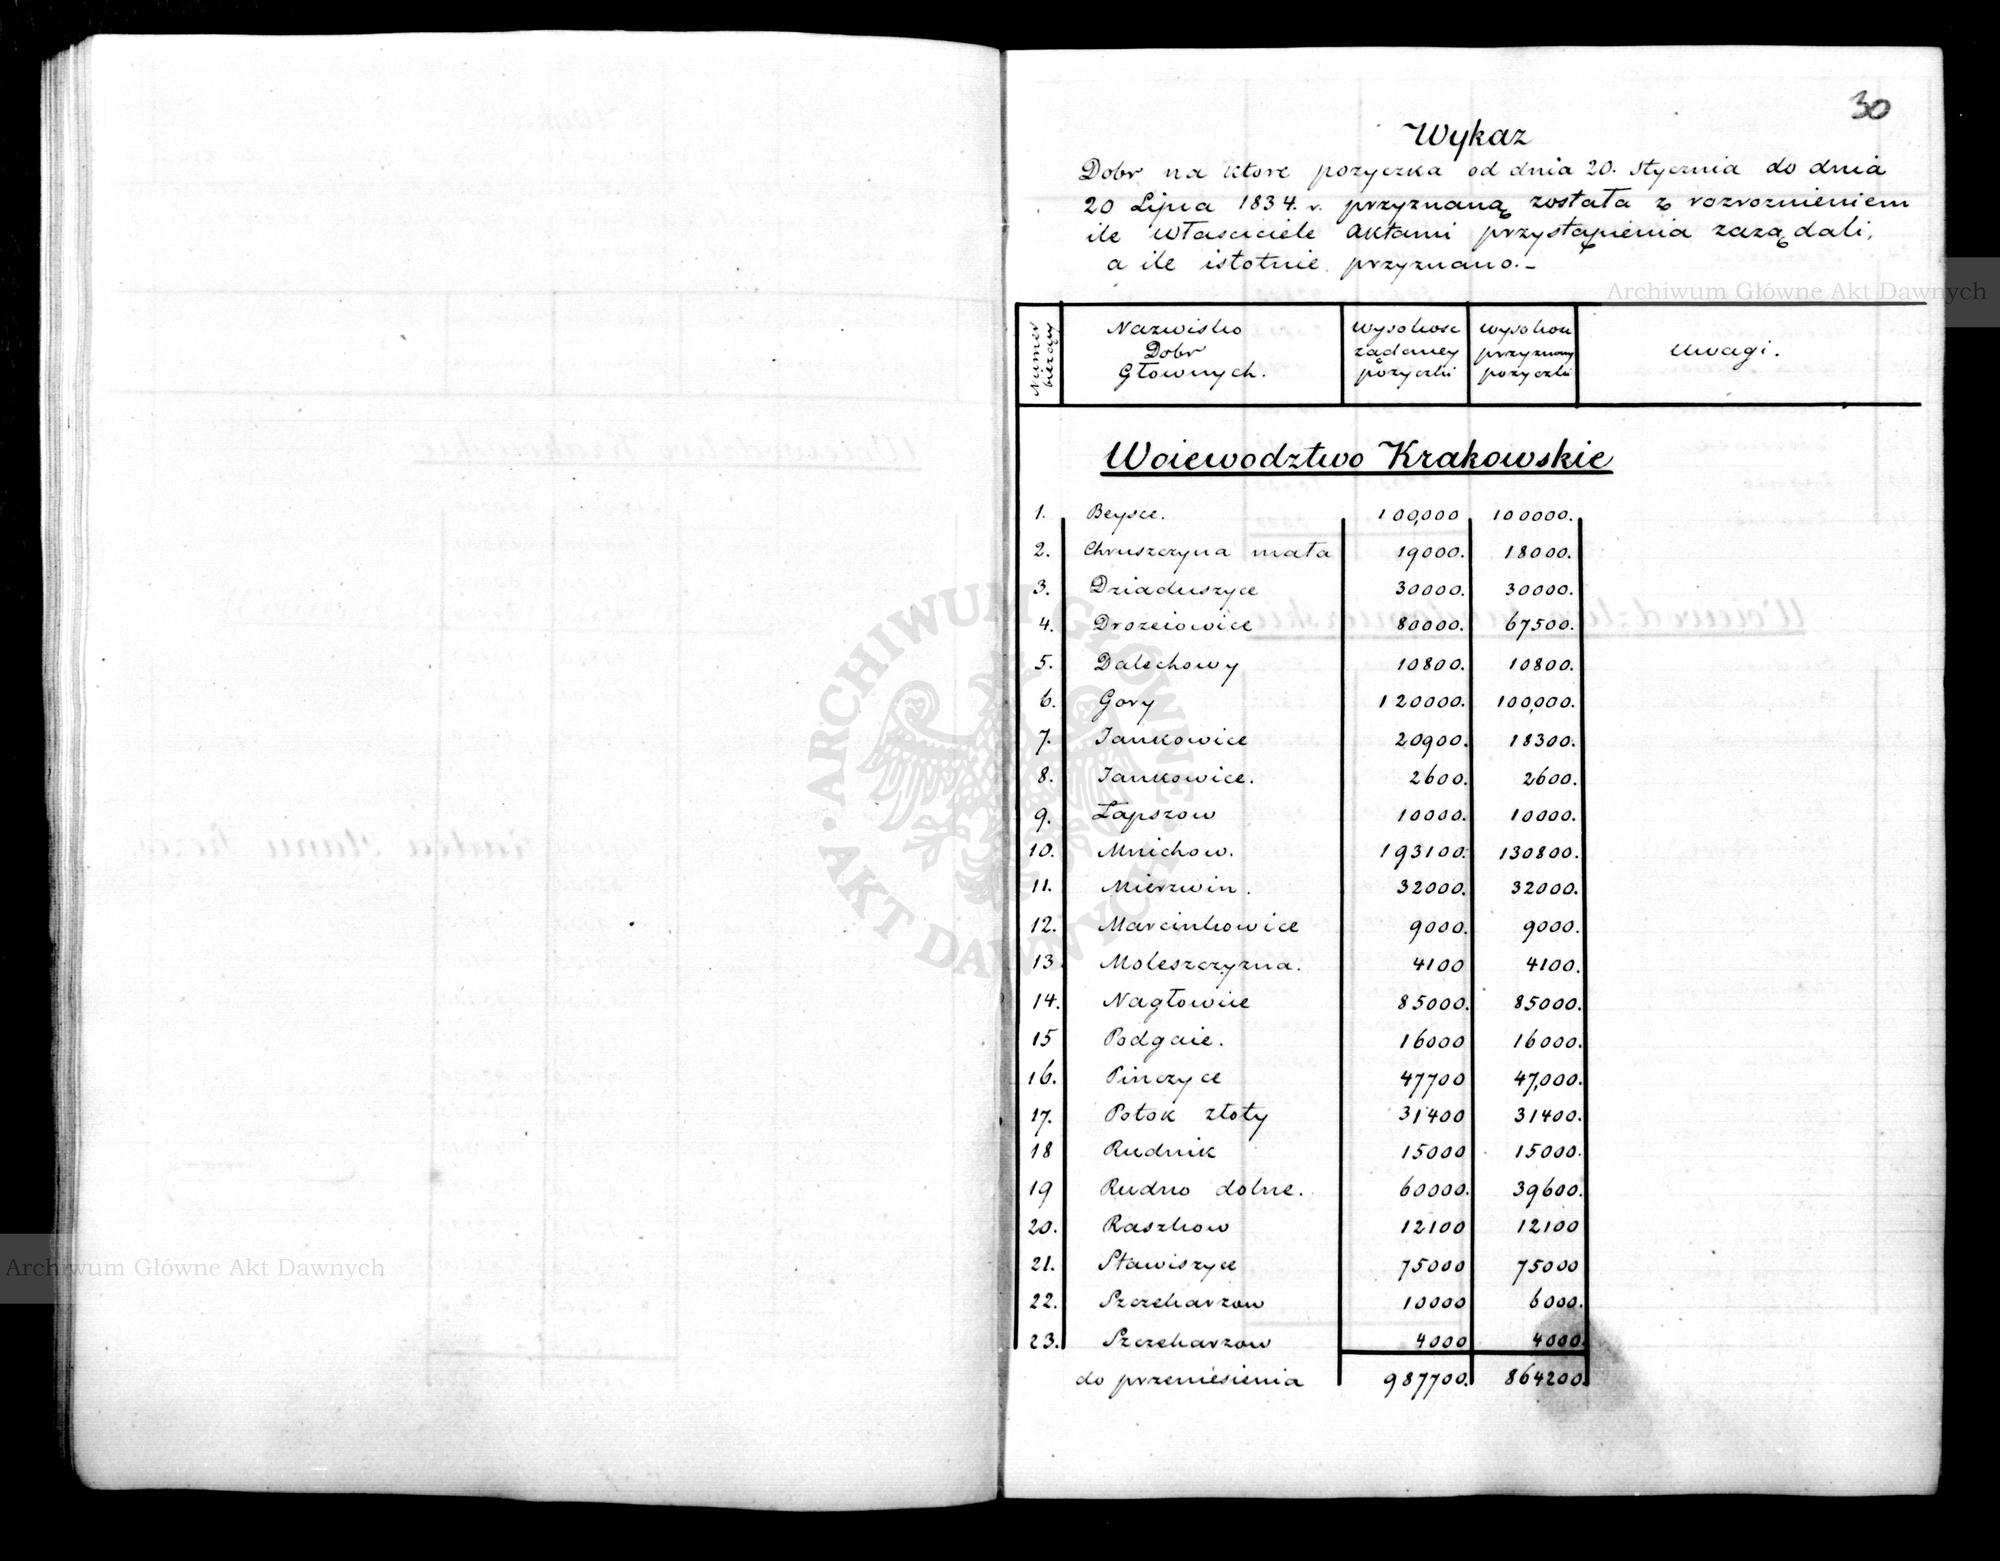 30
Wykaz
Dobr na ktore pozyczka od dnia 20. Stycznia do dnia
20 Lipca 1834. r. przyznaną została z rozroznieniem
ile właściciele aktami przystąpienia zażądali,
a ile istotnie przyznano.-
Numer bieżący
Nazwisko Dobr Głownych.
wysokosc żądaney pożyczki
wysokosc przyznaney pożyczki
Uwagi.
Woiewodztwo Krakowskie
1. Beysce. 100,000 100000.
2. Chruszczyna mała 19000. 18000.
3. Dziaduszyce 30000. 30000.
4. Drozeiowice 80000. 67500.
5. Dalechowy 10800. 10800.
6. Gory 120000. 100,000.
7. Iankowice 20900. 18300.
8. Iankowice. 2600. 2600.
9. Łapszow 10000. 10000.
10. Mnichow. 193100. 130800.
11. Mierzwin. 32000. 32000.
12. Marcinkowice 9000. 9000.
13. Moleszczyzna. 4100 4100.
14. Nagłowice 85000. 85000.
15 Podgaie. 16000 16000.
16. Pinczyce 47700 47,000.
17. Potok złoty 31400 31400.
18 Rudnik 15000 15000.
19 Rudno dolne. 60000. 39600.
20. Raszkow 12100 12100
21. Stawiszyce 75000 75000
22. Szczekarzow 10000 6000.
23. Szczekarzow 4000 4000.
do przeniesienia 987700. 864200.
Archiwum Główne Akt Dawnych
Archiwum Główne Akt Dawnych
ARCHIWUM GŁÓWNE • AKT DAWNYCH •